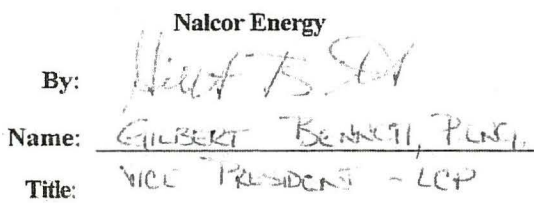 Nalcor Energy
By:
Name: GILBERT BENNETT, P.ENG.
Title: VICE PRESIDENT - LCP